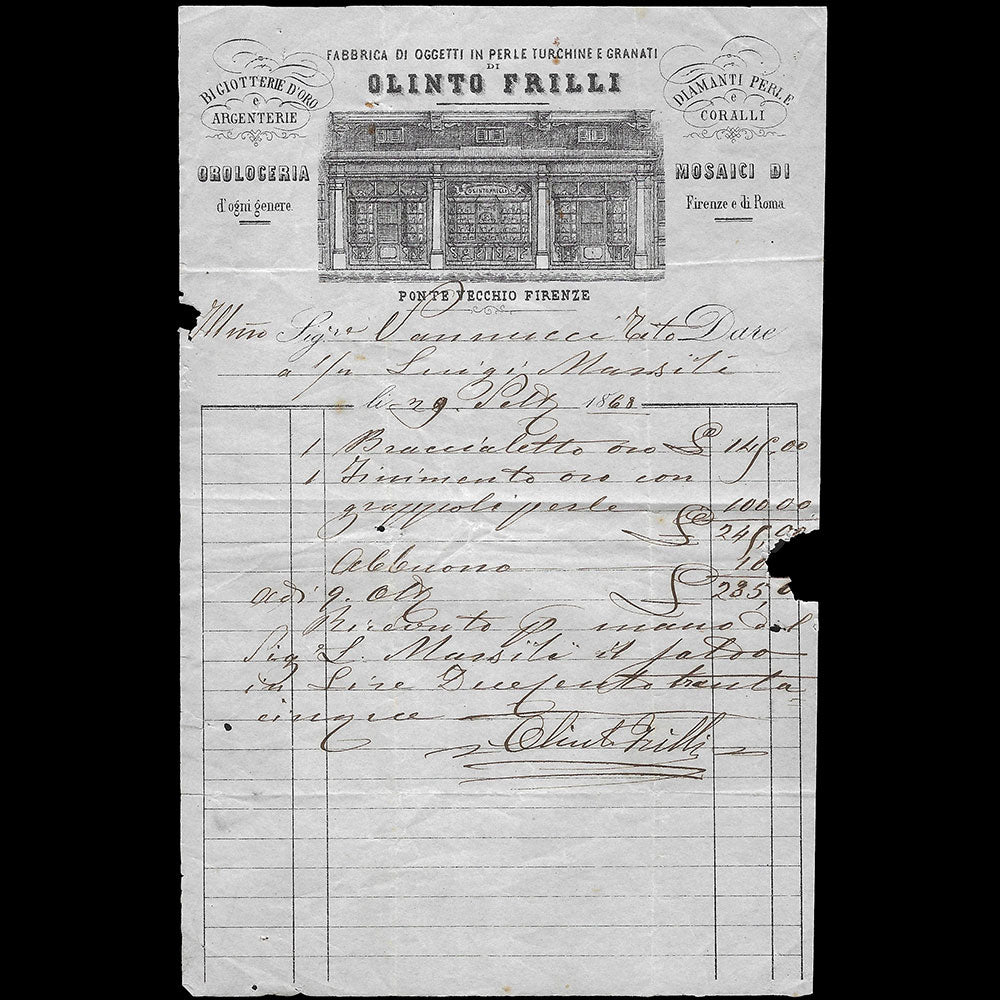 FABBRICA DI OGGETTI IN PERLE TURCHINE E GRANATI
DI
OLINTO FRILLI
BIGIOTTERIE D'ORO
e
ARGENTERIE
OROLOGERIA
d'ogni genere.
DIAMANTI PERLE
e
CORALLI
MOSAICI DI
Firenze e di Roma
OLINTO FRILLI
PONTE VECCHIO FIRENZE
Illmo Sigre Vannucci Dare
a Luigi Marsili
li 29. 1868
1 Braccialetto oro £ 145,00
1 Finimento oro con
grappoli perle 100,00
£ 245,00
Abbuono 10
adi 9. £ 235,0
Ricevuto p mano del
Sigr L. Marsili il saldo
in Lire Duecentotrenta
cinque
Olinto Frilli